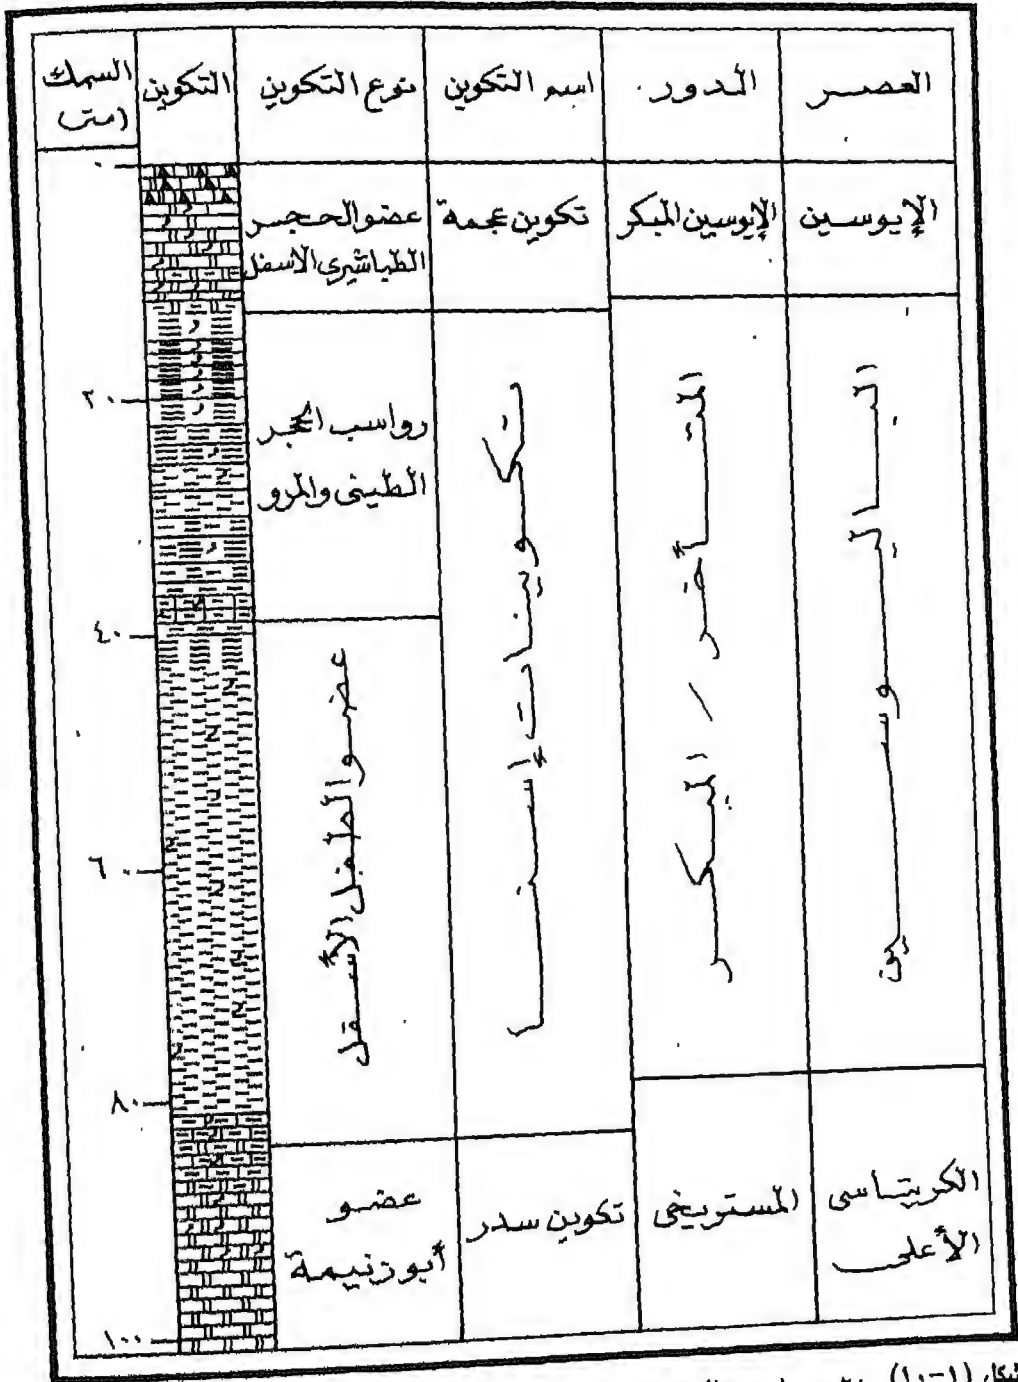 العصر
الدور
اسم التكوين
نوع التكوين
التكوين
السمك
(متر)
الإيوسين
الإيوسين المبكر
تكوين عجمة
عضو الحجر
الطباشيرى الأسفل
٠
الباليوسين
المتأخر / المبكر
تكوينات إسنا
رواسب الحجر
الطينى والمرو
٢٠
٤٠
عضو الطفل الأسفل
٦٠
٨٠
الكريتاسى
الأعلى
المستريخى
تكوين سدر
عضو
أبو زنيمة
١٠٠
شكل (١-١٠)